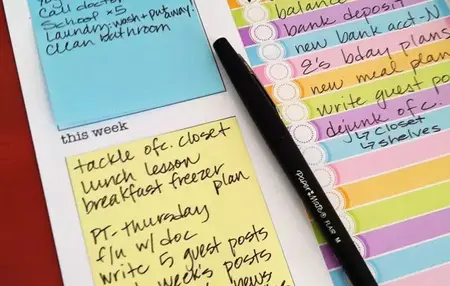 Call doctor
School x5
Laundry-wash + put away
clean bathroom
this week
tackle ofc. closet
lunch lesson
breakfast freezer
plan
PT-thursday
f/u w/ doc
write 5 guest posts
week's posts
news
Paper Mate FLAIR M
balance
bank deposit
new bank acct-N
E's bday plans
new meal plan
write guest posts
dejunk ofc.
↳ closet
↳ shelves